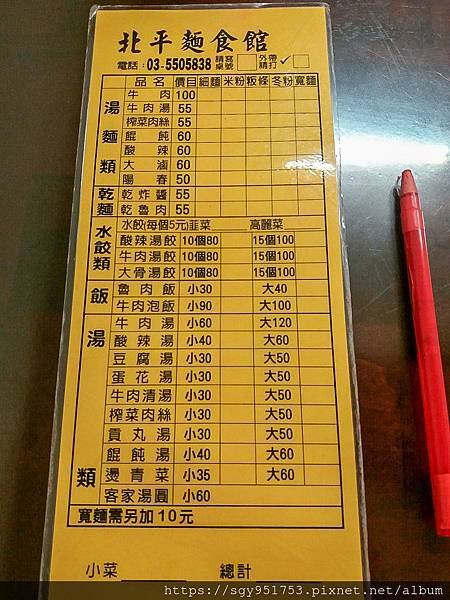 北平麵食館
電話：03-5505838 請寫桌號 外帶請打✓
品名 價目 細麵 米粉 粄條 冬粉 寬麵
湯麵類
牛肉 100
牛肉湯 55
榨菜肉絲 55
餛飩 60
酸辣 60
大滷 60
陽春 50
乾麵
乾炸醬 55
乾魯肉 55
水餃類
水餃(每個5元)韮菜 高麗菜
酸辣湯餃 10個80 15個100
牛肉湯餃 10個80 15個100
大骨湯餃 10個80 15個100
飯
魯肉飯 小30 大40
牛肉泡飯 小90 大100
湯類
牛肉湯 小60 大120
酸辣湯 小40 大60
豆腐湯 小30 大50
蛋花湯 小30 大50
牛肉清湯 小30 大50
榨菜肉絲 小30 大50
貢丸湯 小30 大50
餛飩湯 小40 大60
燙青菜 小35 大60
客家湯圓 小60
寬麵需另加10元
小菜 總計
https://sgy951753.pixnet.net/album